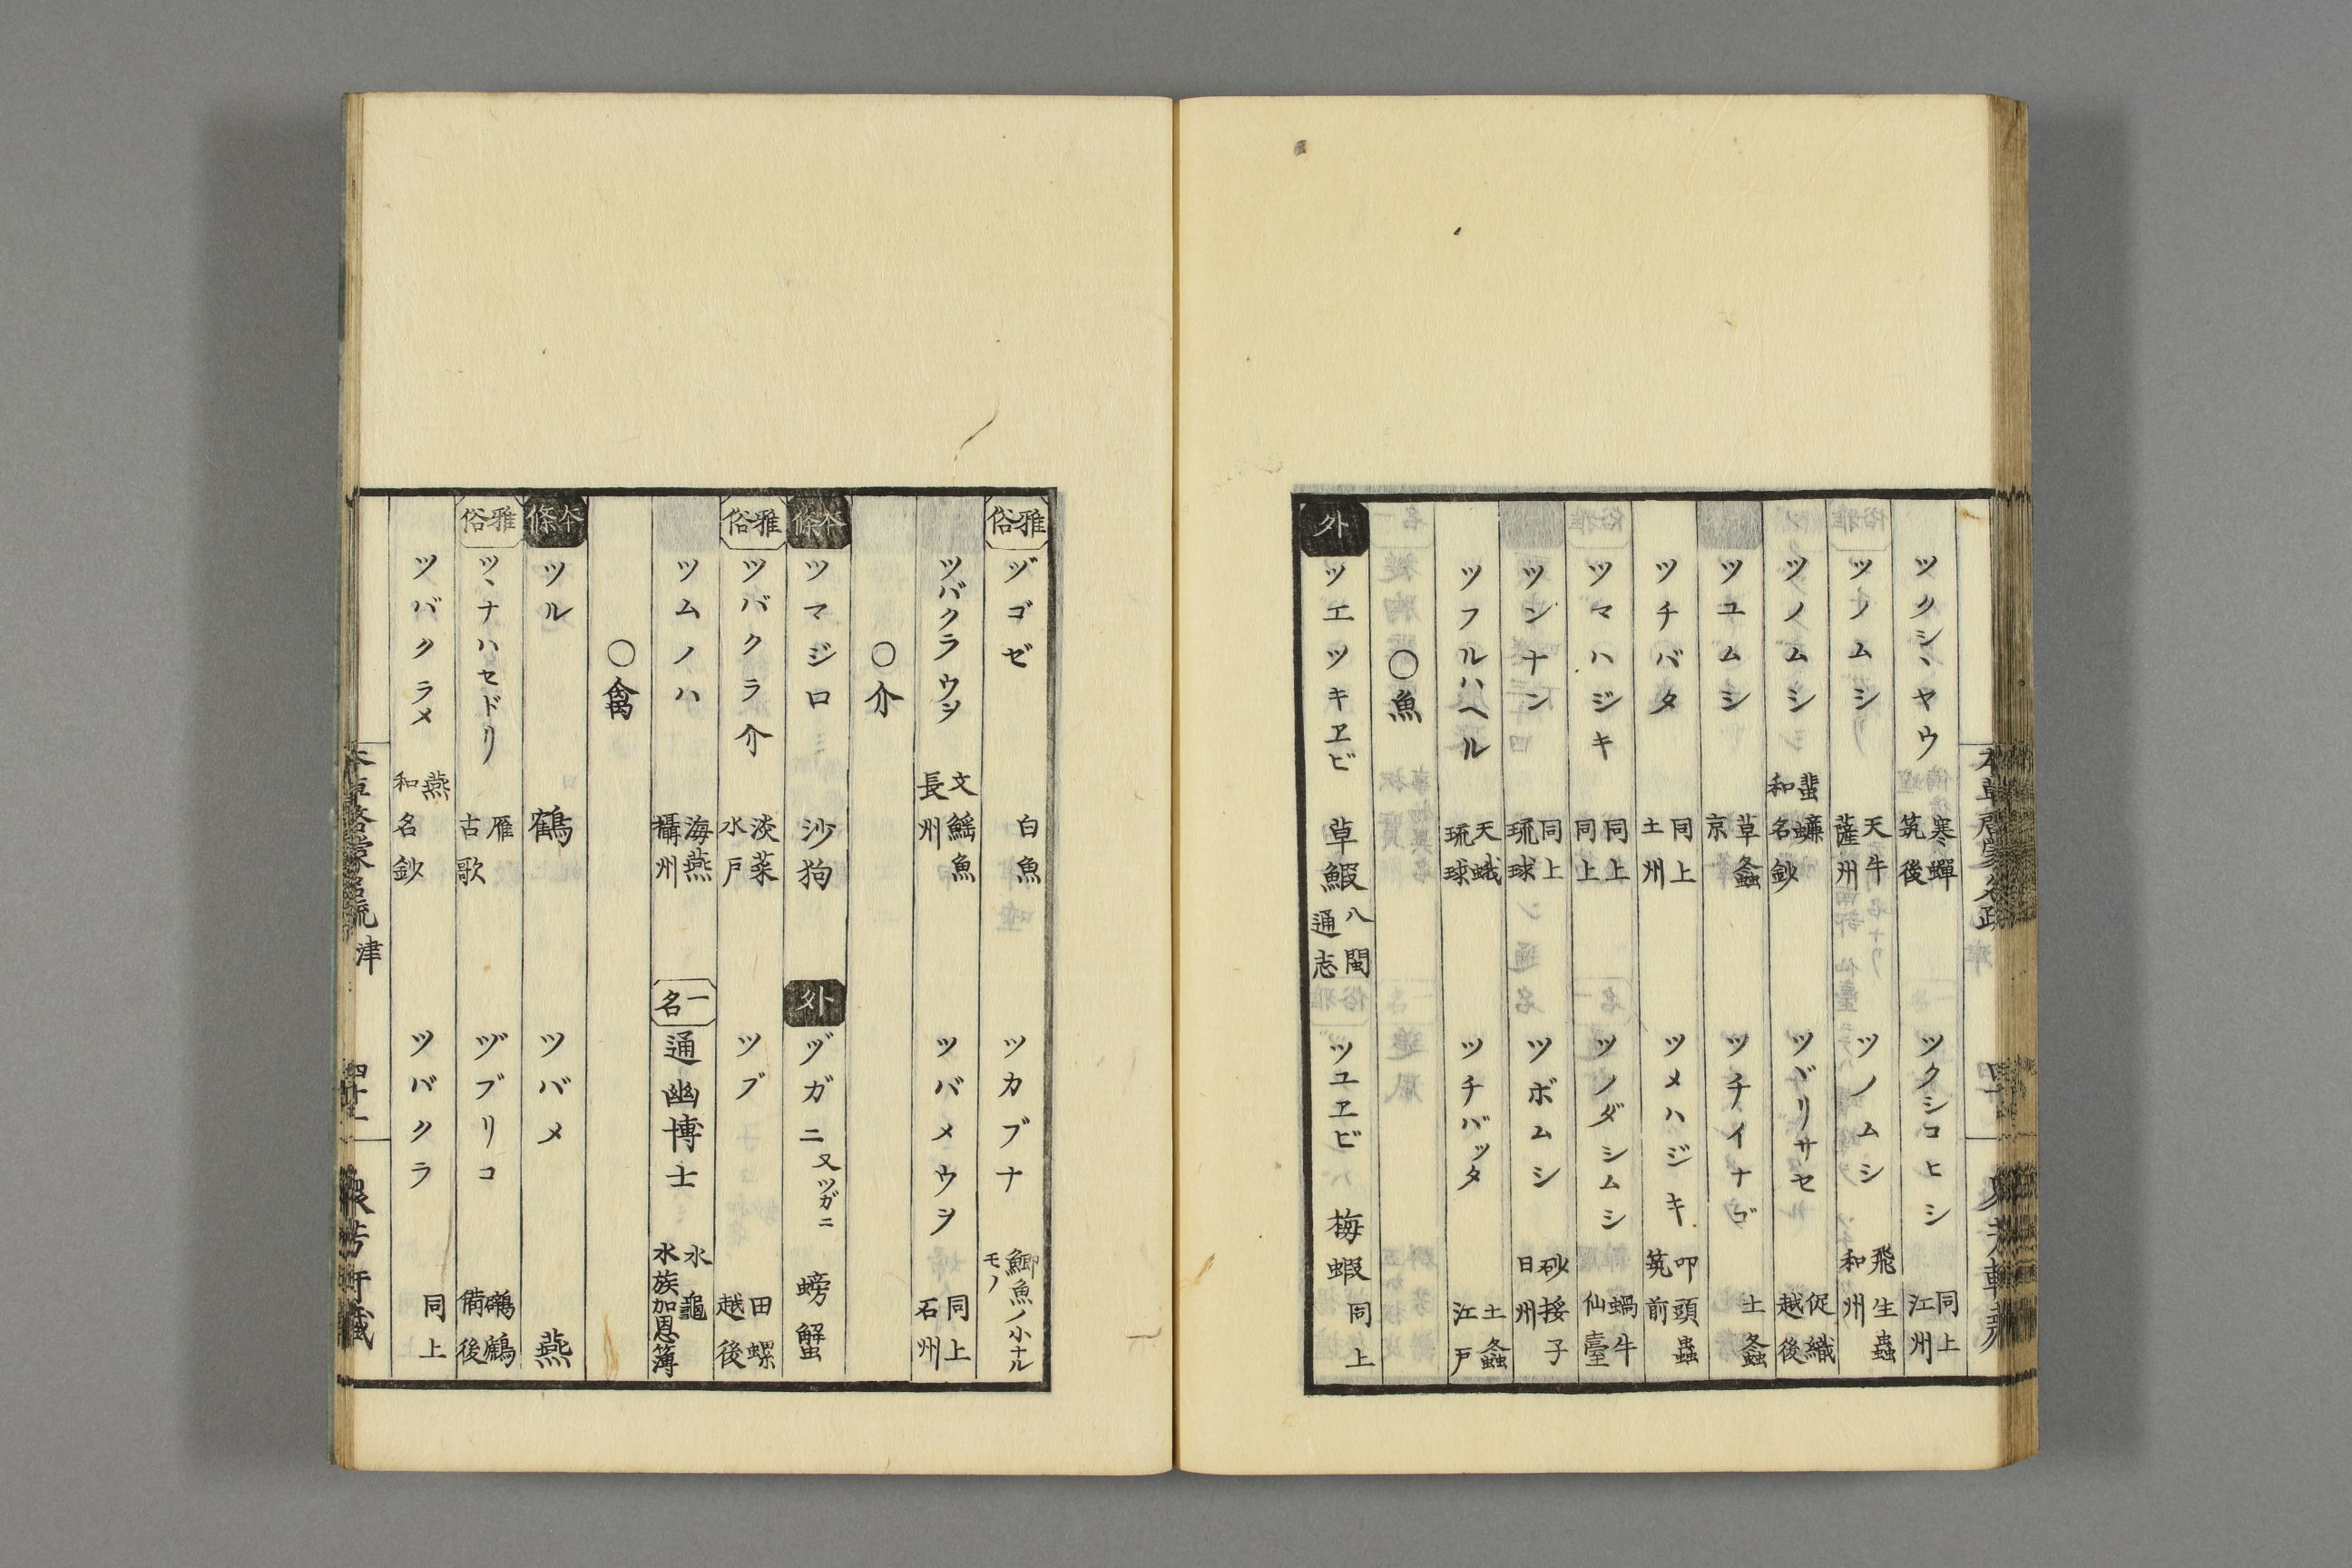 ツクシヽヤウ 寒蟬 筑後 ツクシコヒシ 同上 江州
ツノムシ 天牛 薩州 ツノムシ 飛生蟲 和州
ツノムシ 蜚蠊 和名鈔 ツヾリサセ 促織 越後
ツユムシ 草螽 京 ツチイナゴ 土螽
ツチバタ 同上 土州 ツメハジキ 叩頭蟲 筑前
ツマハジキ 同上 同上 ツノダシムシ 蝸牛 仙臺
ツンナン 同上 琉球 ツボムシ 砂挼子 日州
ツフルハヘル 天蛾 琉球 ツチバッタ 土螽 江戸
〇魚
外 ツエツキヱビ 草鰕 八閩通志 ツユヱビ 梅蝦 同上
雅俗 ヅゴゼ 白魚 ツカブナ 鯽魚ノ小ナルモノ
ツバクラウヲ 文鰩魚 長州 ツバメウヲ 同上 石州
〇介
本條 ツマジロ 沙狗 外 ヅガニ 又ツガニ 螃蟹
雅俗 ツバクラ介 淡菜 水戸 ツブ 田螺 越後
ツムノハ 海燕 攝州 一名 通幽博士 水龜 水族加恩簿
〇禽
本條 ツル 鶴 ツバメ 燕
雅俗 ツヽナハセドリ 雁 古歌 ヅブリコ 鸊鷉 備後
ツバクラメ 燕 和名鈔 ツバクラ 同上
津